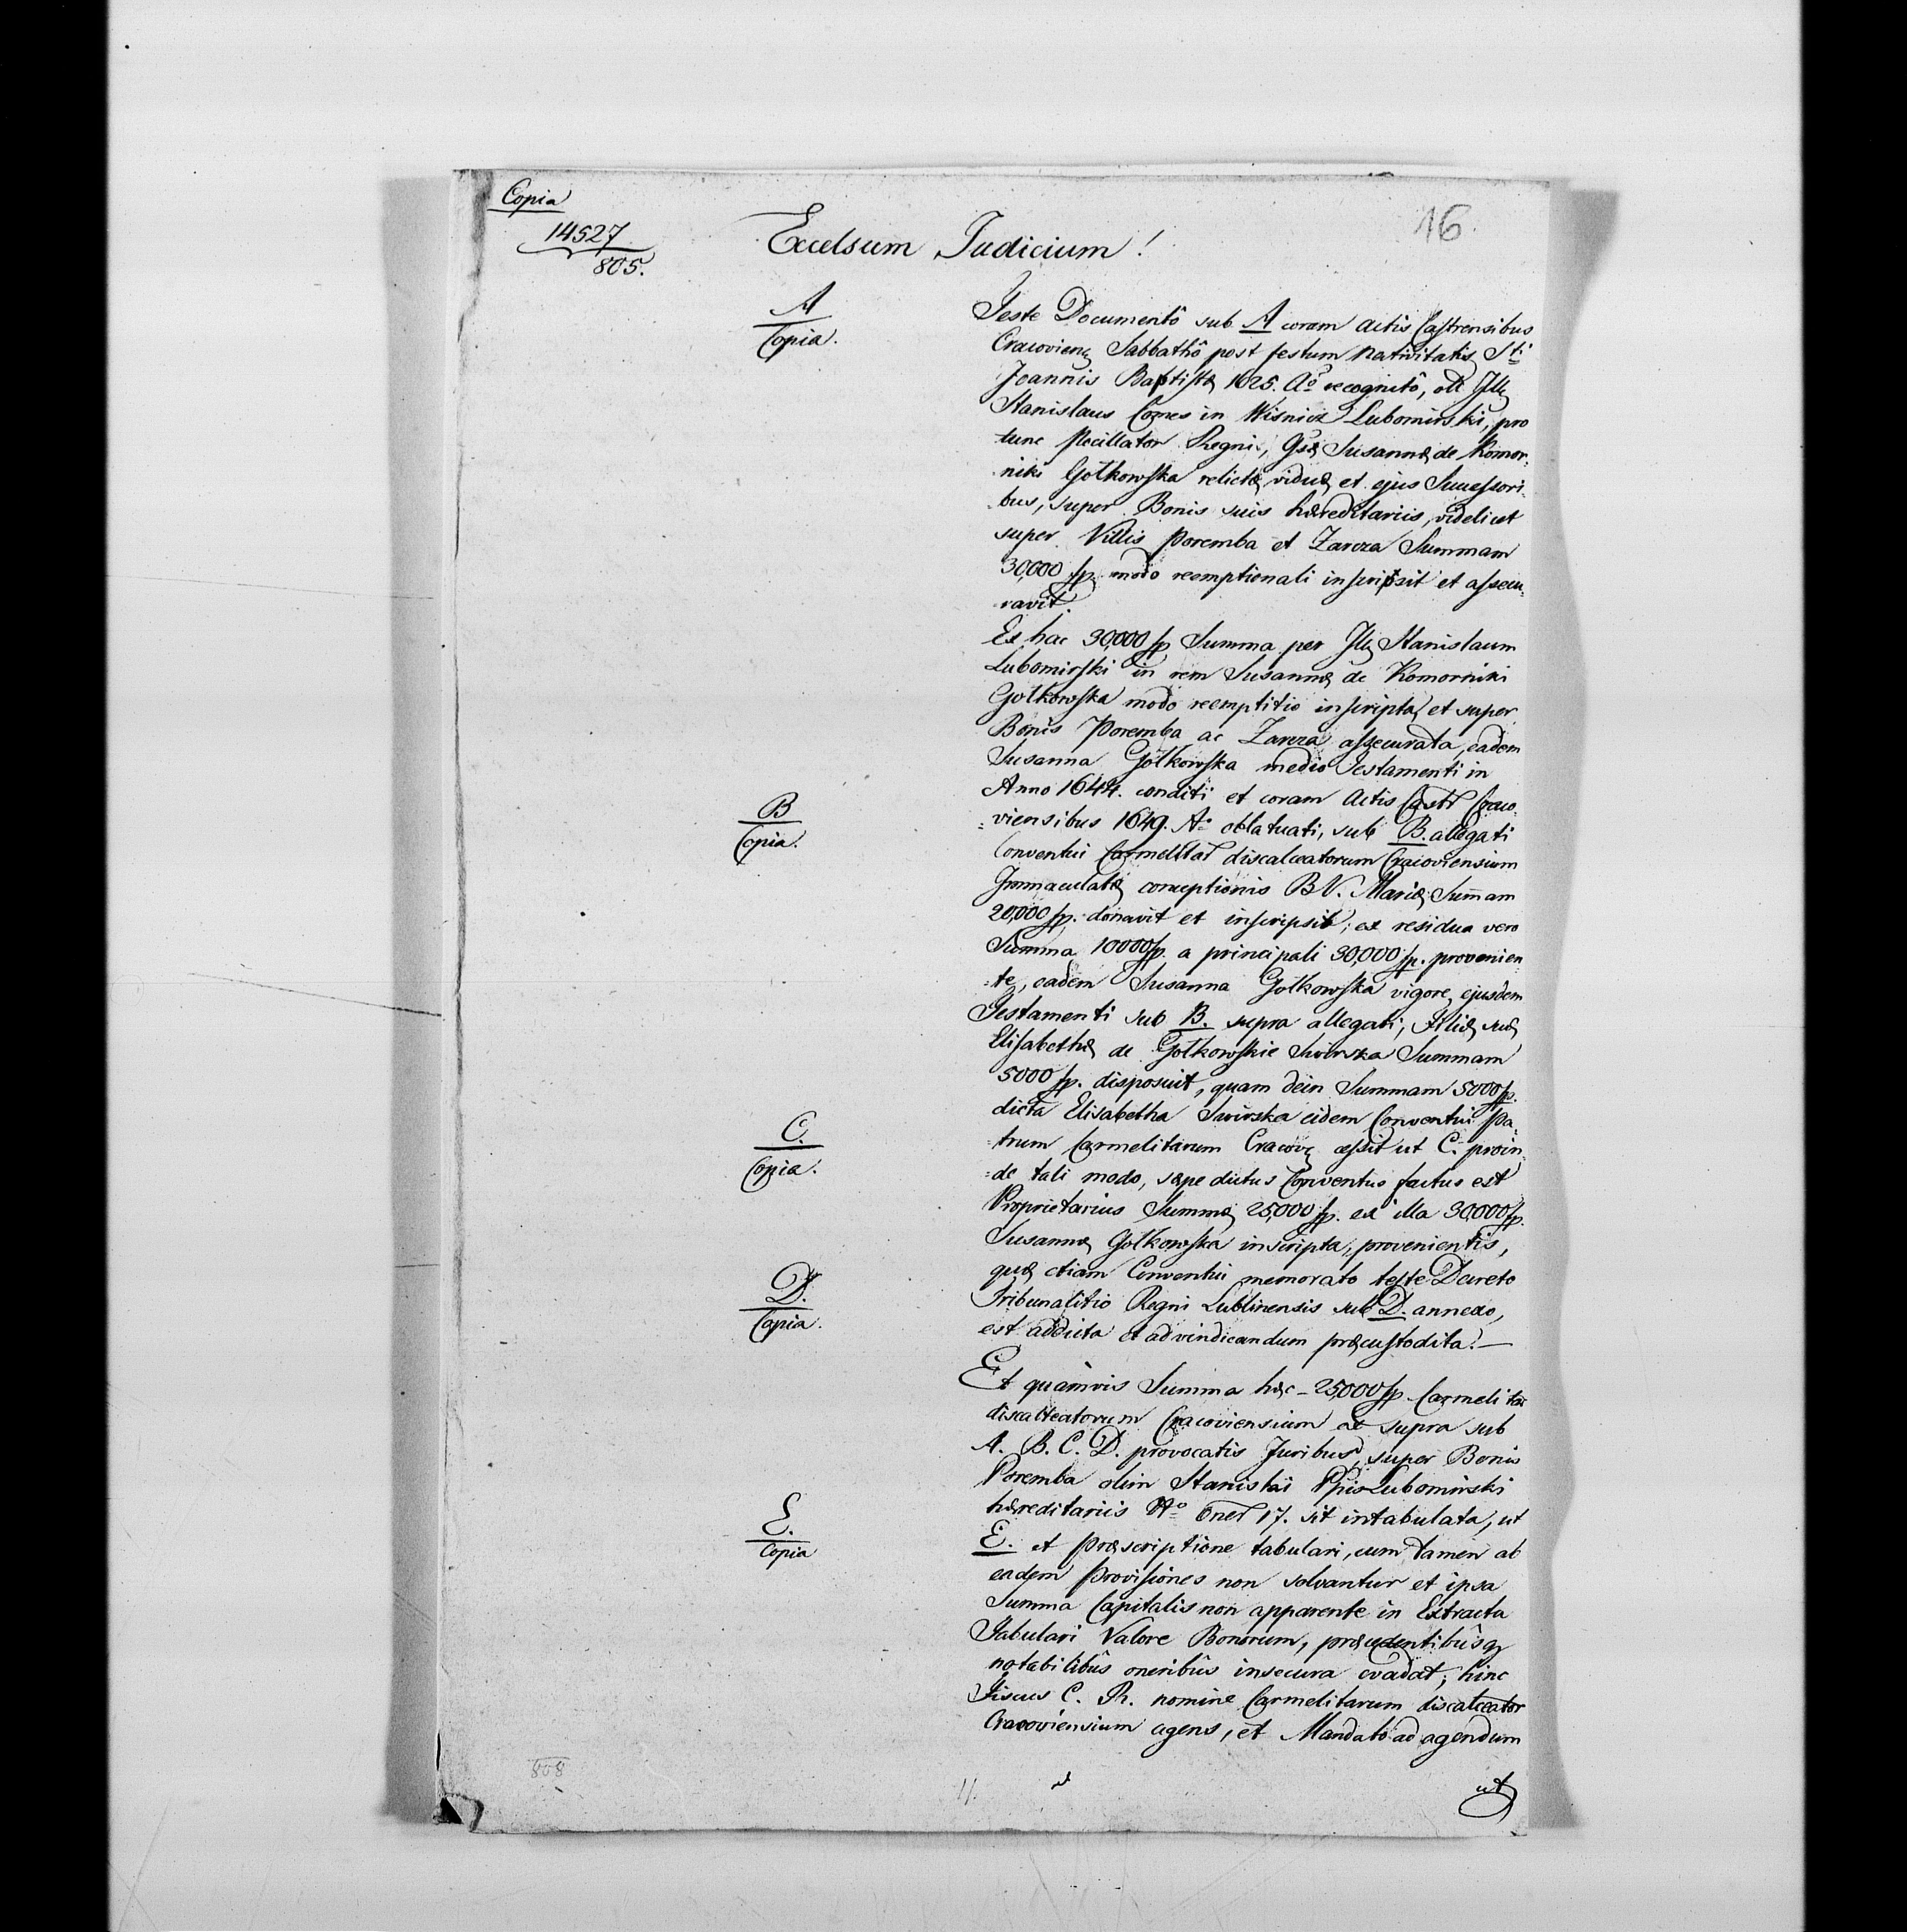 Copia
14527
805.
16.
Excelsum Judicium!
A
Copia.
Teste Documentô sub A coram Actis Castrensibus
Cracovien Sabbathô post festum Nativitatis Sti
Joannis Baptistæ 1625. Aº recognitô, olt Ill
Stanislaus Comes in Wisnicz Lubomirski, pro
tunc Pocillator Regni, Gsæ Susannæ de Komor-
niki Gołkowska relictæ viduæ et ejus Successori-
bus, super Bonis suis hæreditariis, videlicet
super Villis Poremba et Zarcza Summam
30,000 fp. modo reemptionali inscripsit et assecu-
ravit.
Ex hac 30,000 fp Summa per Ill Stanislaum
Lubomirski in rem Susannæ de Komorniki
Gołkowska modo reemptitio inscripta, et super
Bonis Poremba ac Zarcza assecurata, eadem
Susanna Gołkowska medio Testamenti in
Anno 1644. conditi et coram Actis Castr Craco-
B
Copia.
=viensibus 1649. Aº oblatuati, sub B. allegati
Conventui Carmelitar discalceatorum Cracoviensium
Immaculatæ conceptionis B V. Mariæ Sum̄am
20,000 fp. donavit et inscripsit; ex residua vero
Summa 10000 fp. a principali 30,000 fp. provenien
=te, eadem Susanna Gołkowska vigore ejusdem
Testamenti sub B. supra allegati, Filiæ suæ
Elisabethæ de Gołkowskie Swirska Summam
5000 fp. disposuit, quam dein Summam 5000 fp.
dicta Elisabetha Swirska eidem Conventui Pa-
C.
Copia.
=trum Carmelitarum Cracov cessit ut C. proin-
=de tali modo, sæpe dictus Conventus factus est
Proprietarius Summæ 25,000 fp. ex illa 30,000 fp.
Susannæ Gołkowska inscripta, provenientis,
quæ etiam Conventui memorato teste Decreto
D.
Copia.
Tribunalitio Regni Lublinensis sub D. annexo,
est addicta et ad vindicandum præcustodita.—
Et quamvis Summa hæc - 25,000 fp Carmelitar
discalceatorum Cracoviensium ex supra sub
A. B. C. D. provocatis Juribus, super Bonis
Poremba olim Stanislai Ppis Lubomirski
hæreditariis Nº Oner 17. sit intabulata, ut
E.
Copia
E. et præscriptione tabulari, cum tamen ab
eadem Provisiones non solvantur et ipsa
Summa Capitalis non apparente in Extracta
Tabulari Valore Bonorum, præcedentibûsq
notabilibûs oneribûs insecura evadat; hinc
Fiscus C. R. nomine Carmelitarum discalceator
Cracoviensium agens, et Mandato ad agendum
ut
808
11.